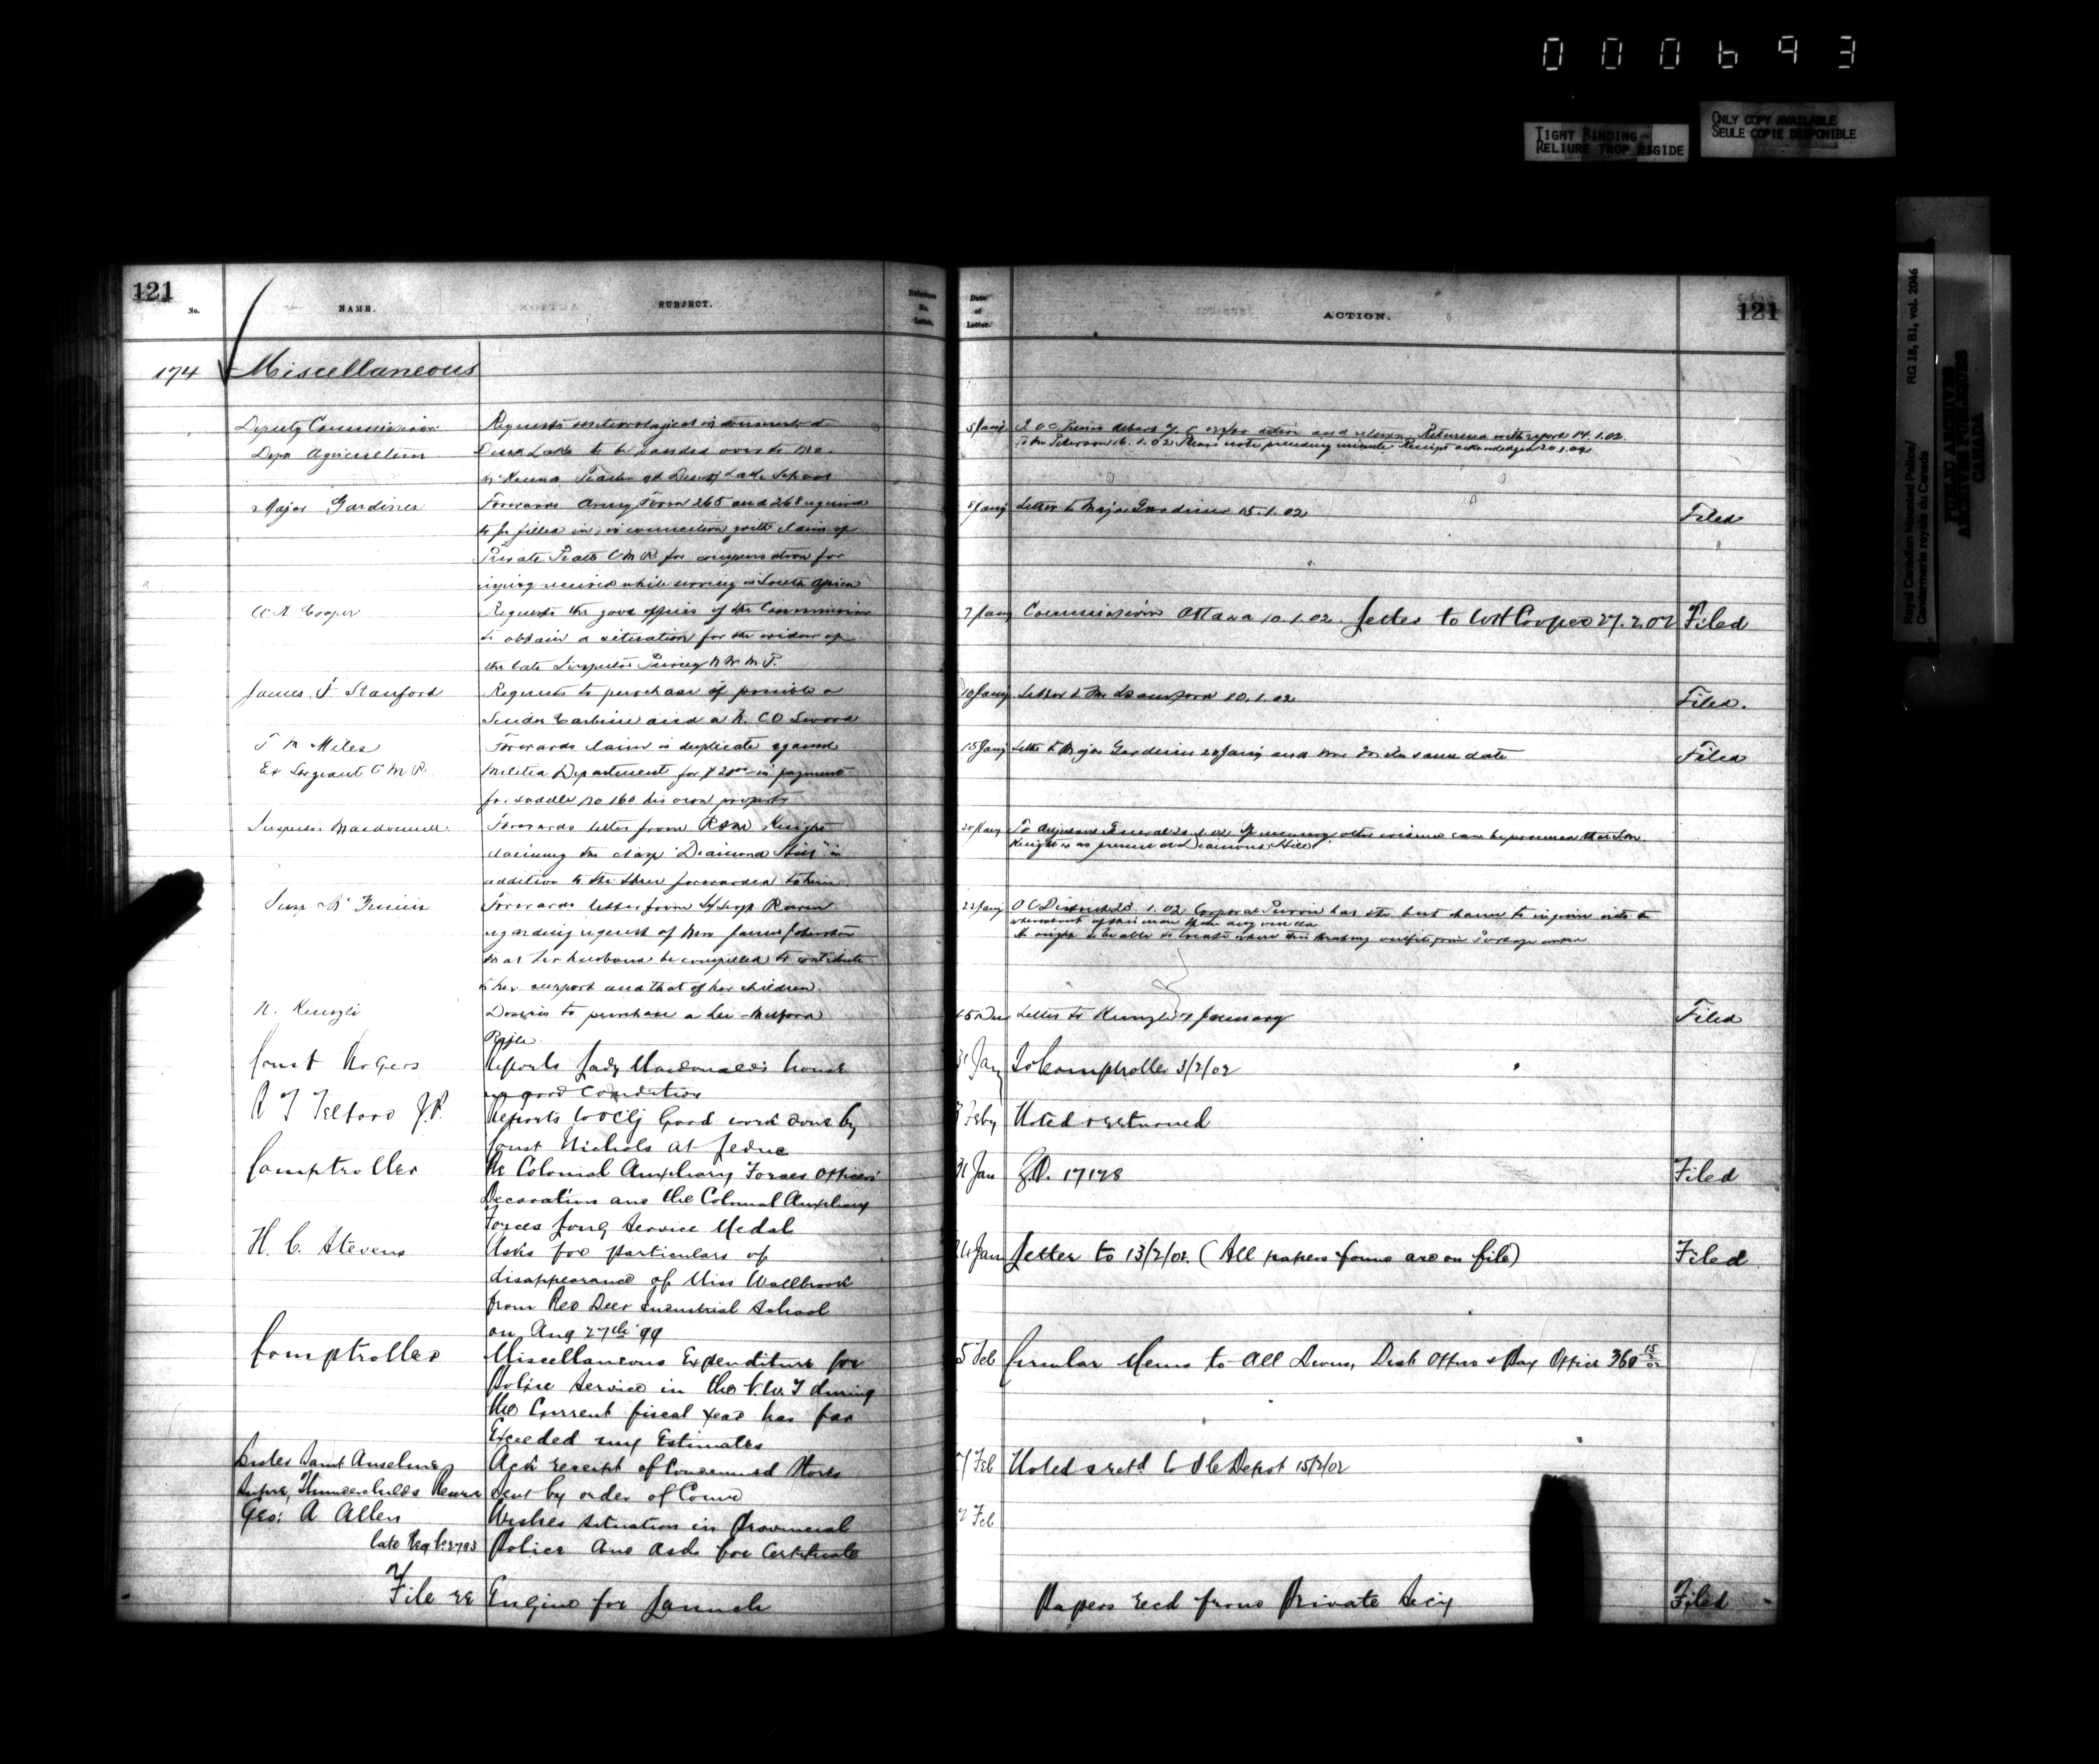 000693
TIGHT BINDING
RELIURE TROP RIGIDE
ONLY COPY AVAILABLE
SEULE COPIE DISPONIBLE
Royal Canadian Mounted Police/
Gendarmerie royale du Canada
RG 18, B1, vol. 2046
PUBLIC ARCHIVES
ARCHIVES PUBLIQUES
CANADA
121
No.
NAME.
SUBJECT.
Reference
No.
Letter.
Date
of
Letter.
ACTION.
121
174 Miscellaneous
Deputy Commissioner
Dept Agriculture
Requests meteorological instruments at
Duck Lake to be handed over to Mr.
McKenna Teacher at Duck Lake School
5 Jany
action and return. Returned with report 14.1.02.
16.1.02 Please note preceding minute Receipt acknowledged 20.1.02
Major Gardiner
Forwards Army Form 265 and 268 required
to be filled in, in connection with claim of
Private Pratt C M R for compensation for
injury received while serving in South Africa
5 Jany Letter to Major Gardiner 15.1.02 Filed
W. H. Cooper
Requests the good offices of the Commissioner
to obtain a situation for the widow of
the late Inspector N W M P.
7 Jany Commissioner Ottawa 10.1.02. Letter to WH Cooper 27.2.02 Filed
James F Stanford
Requests to purchase if possible a
Snider Carbine and a N. C O Sword
10 Jany Letter to Mr Stanford 10.1.02 Filed.
T M Miles
Ex Sergeant C M R.
Forwards claim in duplicate against
Militia Department for $20.00 in payment
for saddle No 160 his own property
15 Jany Letter to Major Gardiner 20 Jany and Mr Miles same date Filed
Inspector Macdonell.
Forwards letter from Knight
claiming the clasp "Diamond Hill" in
addition to the three forwarded to him
To Adjutant General If necessary other evidence can be procured that
Knight was present at Diamond Hill
Insp McGinnis
Forwards letter from S/Sergt Raven
regarding request of Mrs James Johnston
that her husband be compelled to contribute
to her support and that of her children.
22 Jany O C District 1.02 Corporal has the best chance to inquire into the
whereabouts of this man than any one else
He might be able to locate where this outfit from Portage
N. Kunzli
Desires to purchase a Lee-Metford
Rifle
Letter to Kunzli January Filed
Const Rogers
Reports Lady Macdonald's house
in good condition
31 Jany To Comptroller 3/2/02
R T Telford J.P.
Reports Good work done by
Const Nichols at Leduc
Feby Noted & returned
Comptroller
Re Colonial Auxiliary Forces Officers'
Decoration and the Colonial Auxiliary
Forces Long Service Medal
31 Jan G.O. 17178 Filed
H. C. Stevens
Asks for particulars of
disappearance of Miss Wallbrook
from Red Deer Industrial School
on Aug 27th 99
Jan Letter to 13/2/02. (All papers found are on file) Filed
Comptroller
Miscellaneous Expenditure for
Police Service in the N.W.T during
the Current fiscal year has far
Exceeded my Estimates
5 Feb Circular Memo to All Divns, Dist Offices & Pay Office 360 15/2/02
Sister Saint Anselme
Supre, Thunderchilds Reserve
Ack receipt of Condemned Stores
sent by order of Comr
7 Feb Noted & retd to Depot 15/2/02
Geo: A Allen
late Reg No 2783
Wishes situation in Provincial
Police and asks for Certificate
Feb
File re Engine for Launch
Papers recd from Private Secy Filed